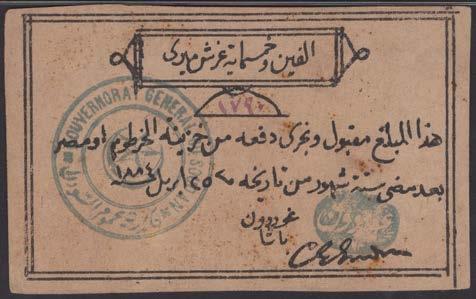 الفين وخمسماية غرش ميرى
١٧٩
هذا المبلغ مقبول وبجرى دفعه من خزينة الخرطوم او مصر
بعد مضى ستة شهور من تاريخه ٢٥ ابريل ١٨٨٤
غوردون
باشا
GOUVERNORAT GENERAL